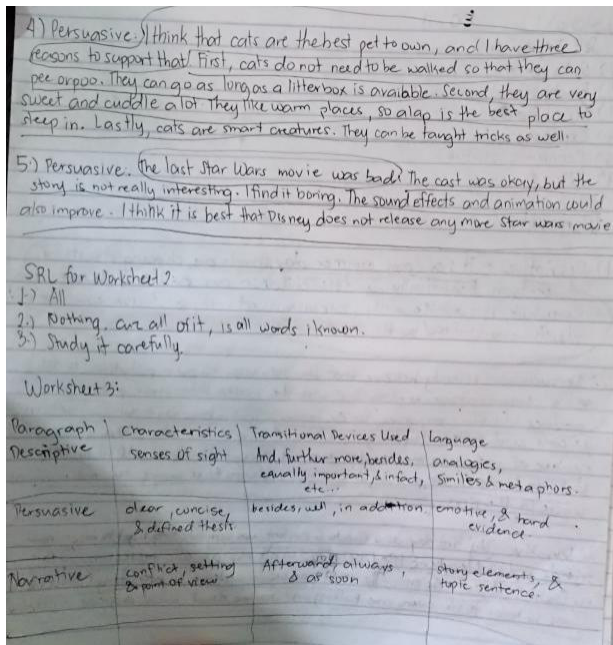 4.) Persuasive. I think that cats are the best pet to own, and I have three
reasons to support that! First, cats do not need to be walked so that they can
pee or poo. They can go as long as a litterbox is avaiable. Second, they are very
sweet and cuddle a lot They like warm places, so alap is the best place to
sleep in. Lastly, cats are smart creatures. They can be taught tricks as well.
5.) Persuasive. The last Star Wars movie was bad! The cast was okay, but the
story is not really interesting. I find it boring. The sound effects and animation could
also improve. I think it is best that Disney does not release any more Star wars movie
SRL for Worksheet 2
1.) All
2.) Nothing, cuz all of it, is all words i known.
3.) Study it carefully.
Worksheet 3:
Paragraph Characteristics Transitional Devices Used language
Descriptive senses of sight And, further more, besides, analogies,
equally important, & infact, similes & metaphors.
etc...
Persuasive clear, concise, besides, well, in addition emotive, & hard
& defined thesis evidence.
Narrative conflict, setting Afterward, always, story elements, &
& point of view & as soon topic sentence.